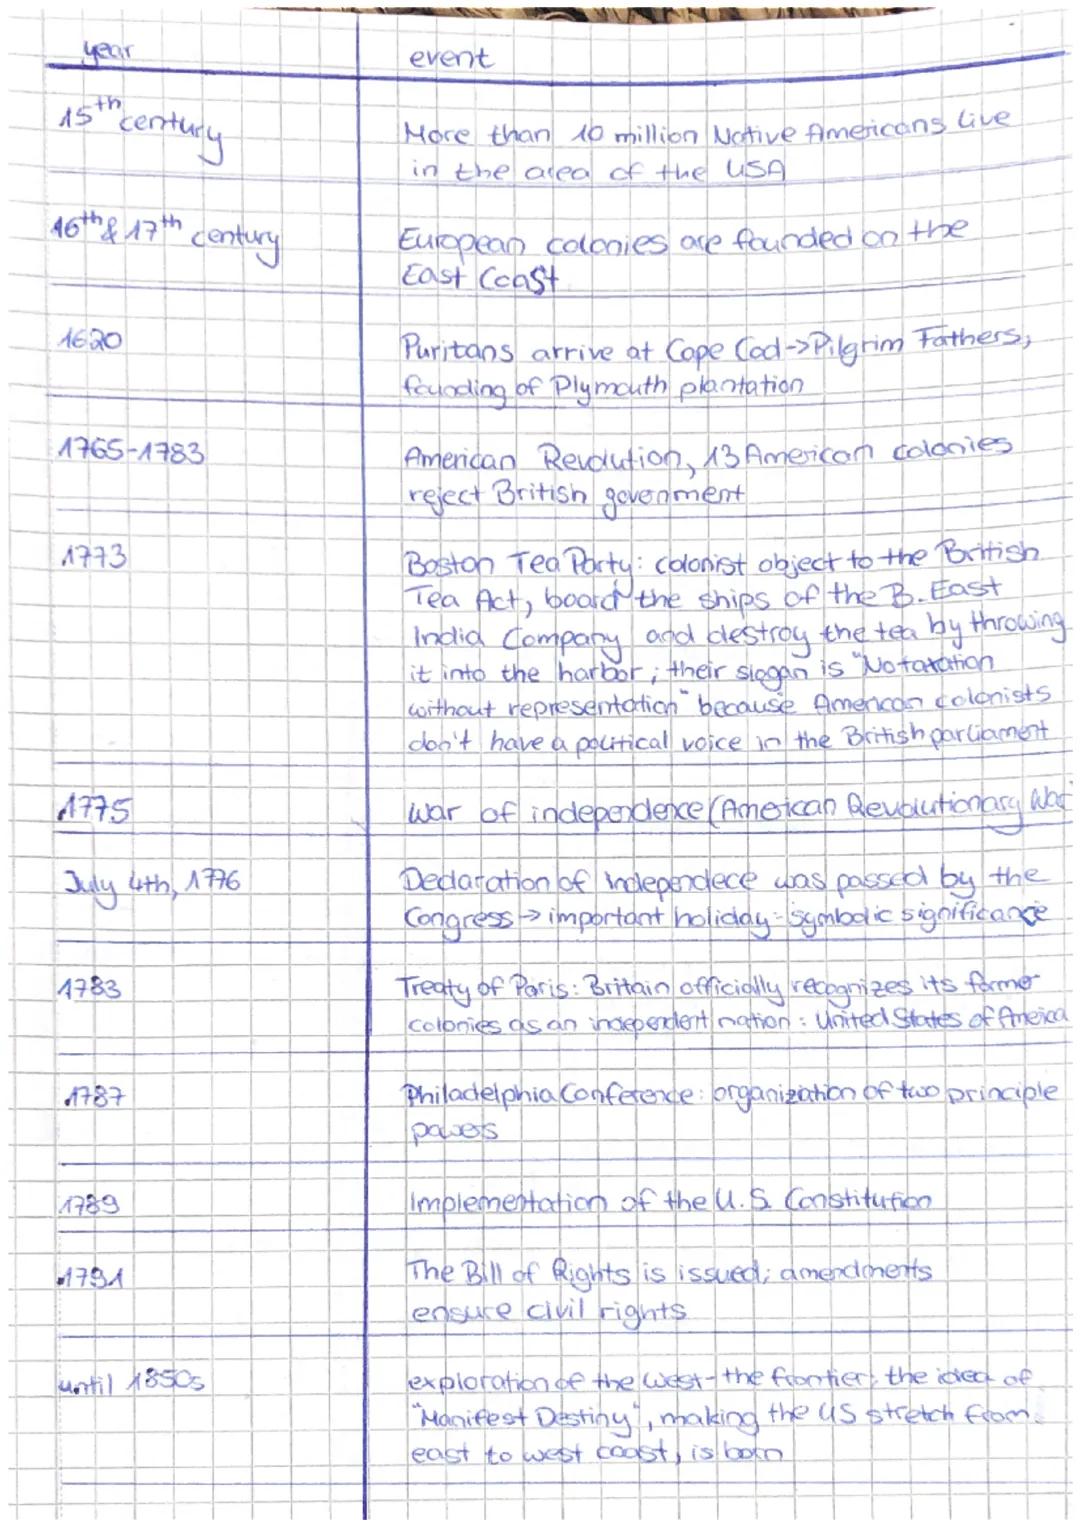 year event
15th century More than 10 million Native Americans live
in the area of the USA
16th & 17th century European colonies are founded on the
East Coast
1620 Puritans arrive at Cape Cod -> Pilgrim Fathers,
founding of Plymouth plantation
1765-1783 American Revolution, 13 American colonies
reject British govenment
1773 Boston Tea Party: colonist object to the British
Tea Act, board the ships of the B. East
India Company and destroy the tea by throwing
it into the harbor; their slogan is "No taxation
without representation" because American colonists
don't have a political voice in the British parliament
1775 War of independence (American Revolutionary War
July 4th, 1776 Declaration of Independece was passed by the
Congress -> important holiday - symbolic significance
1783 Treaty of Paris: Britain officially recognizes its former
colonies as an independent nation: United States of America
1787 Philadelphia Conference: organization of two principle
powers
1789 Implementation of the U.S. Constitution
1791 The Bill of Rights is issued; amendments
ensure civil rights
until 1850s exploration of the west - the frontier; the idea of
"Manifest Destiny", making the US stretch from
east to west coast, is born